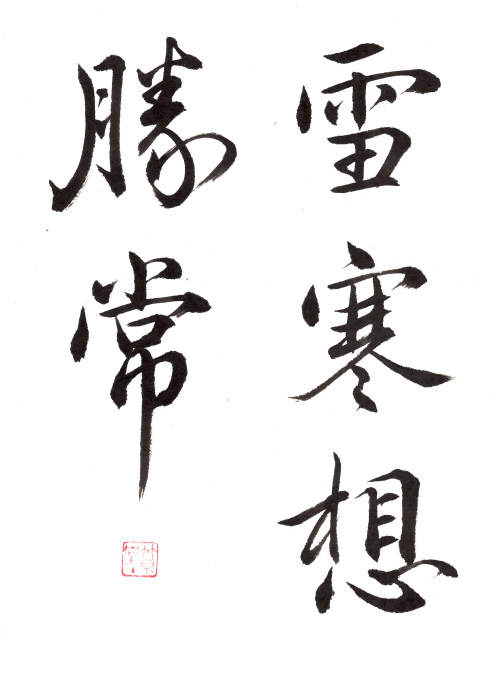 雪寒想
勝常